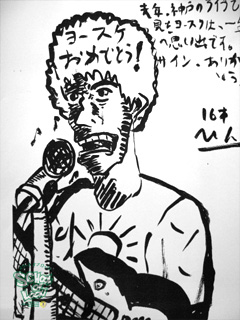 ヨースケ
おめでとう!
去年、神戸のライブで
見たヨースケは、一生
の思い出です。
サイン、ありが
とう
16才